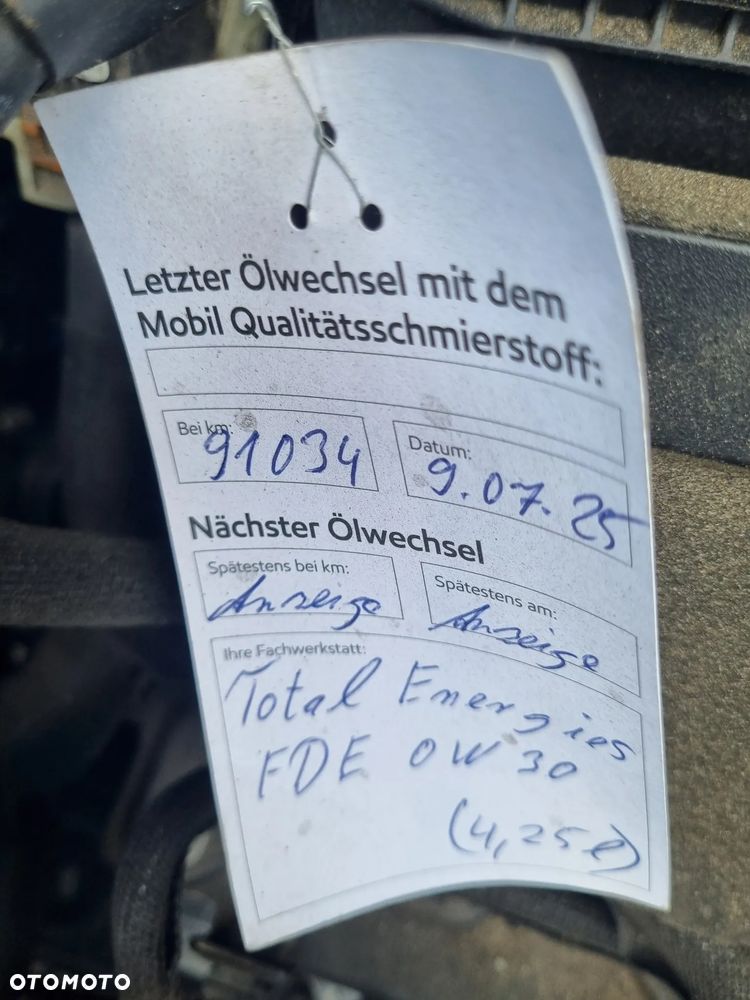 Letzter Ölwechsel mit dem
Mobil Qualitätsschmierstoff:
Bei km: 91034
Datum: 9.07.25
Nächster Ölwechsel
Spätestens bei km: Anzeige
Spätestens am: Anzeige
Ihre Fachwerkstatt:
Total Energies
FDE 0W30
(4,25l)
OTOMOTO